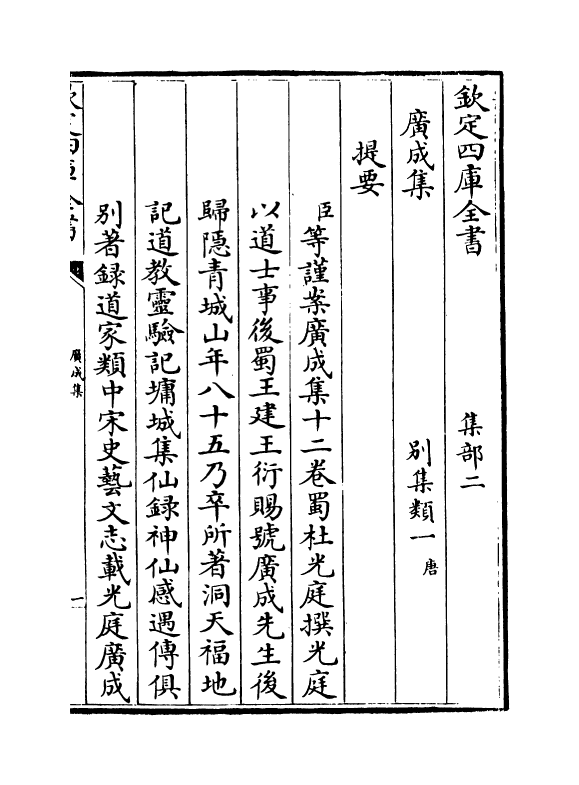 欽定四庫全書 集部二
廣成集 別集類一 唐
提要
臣等謹案廣成集十二卷蜀杜光庭撰光庭
以道士事後蜀王建王衍賜號廣成先生後
歸隱青城山年八十五乃卒所著洞天福地
記道教靈驗記墉城集仙録神仙感遇傳俱
別著録道家類中宋史藝文志載光庭廣成
欽定四庫全書
廣成集
一